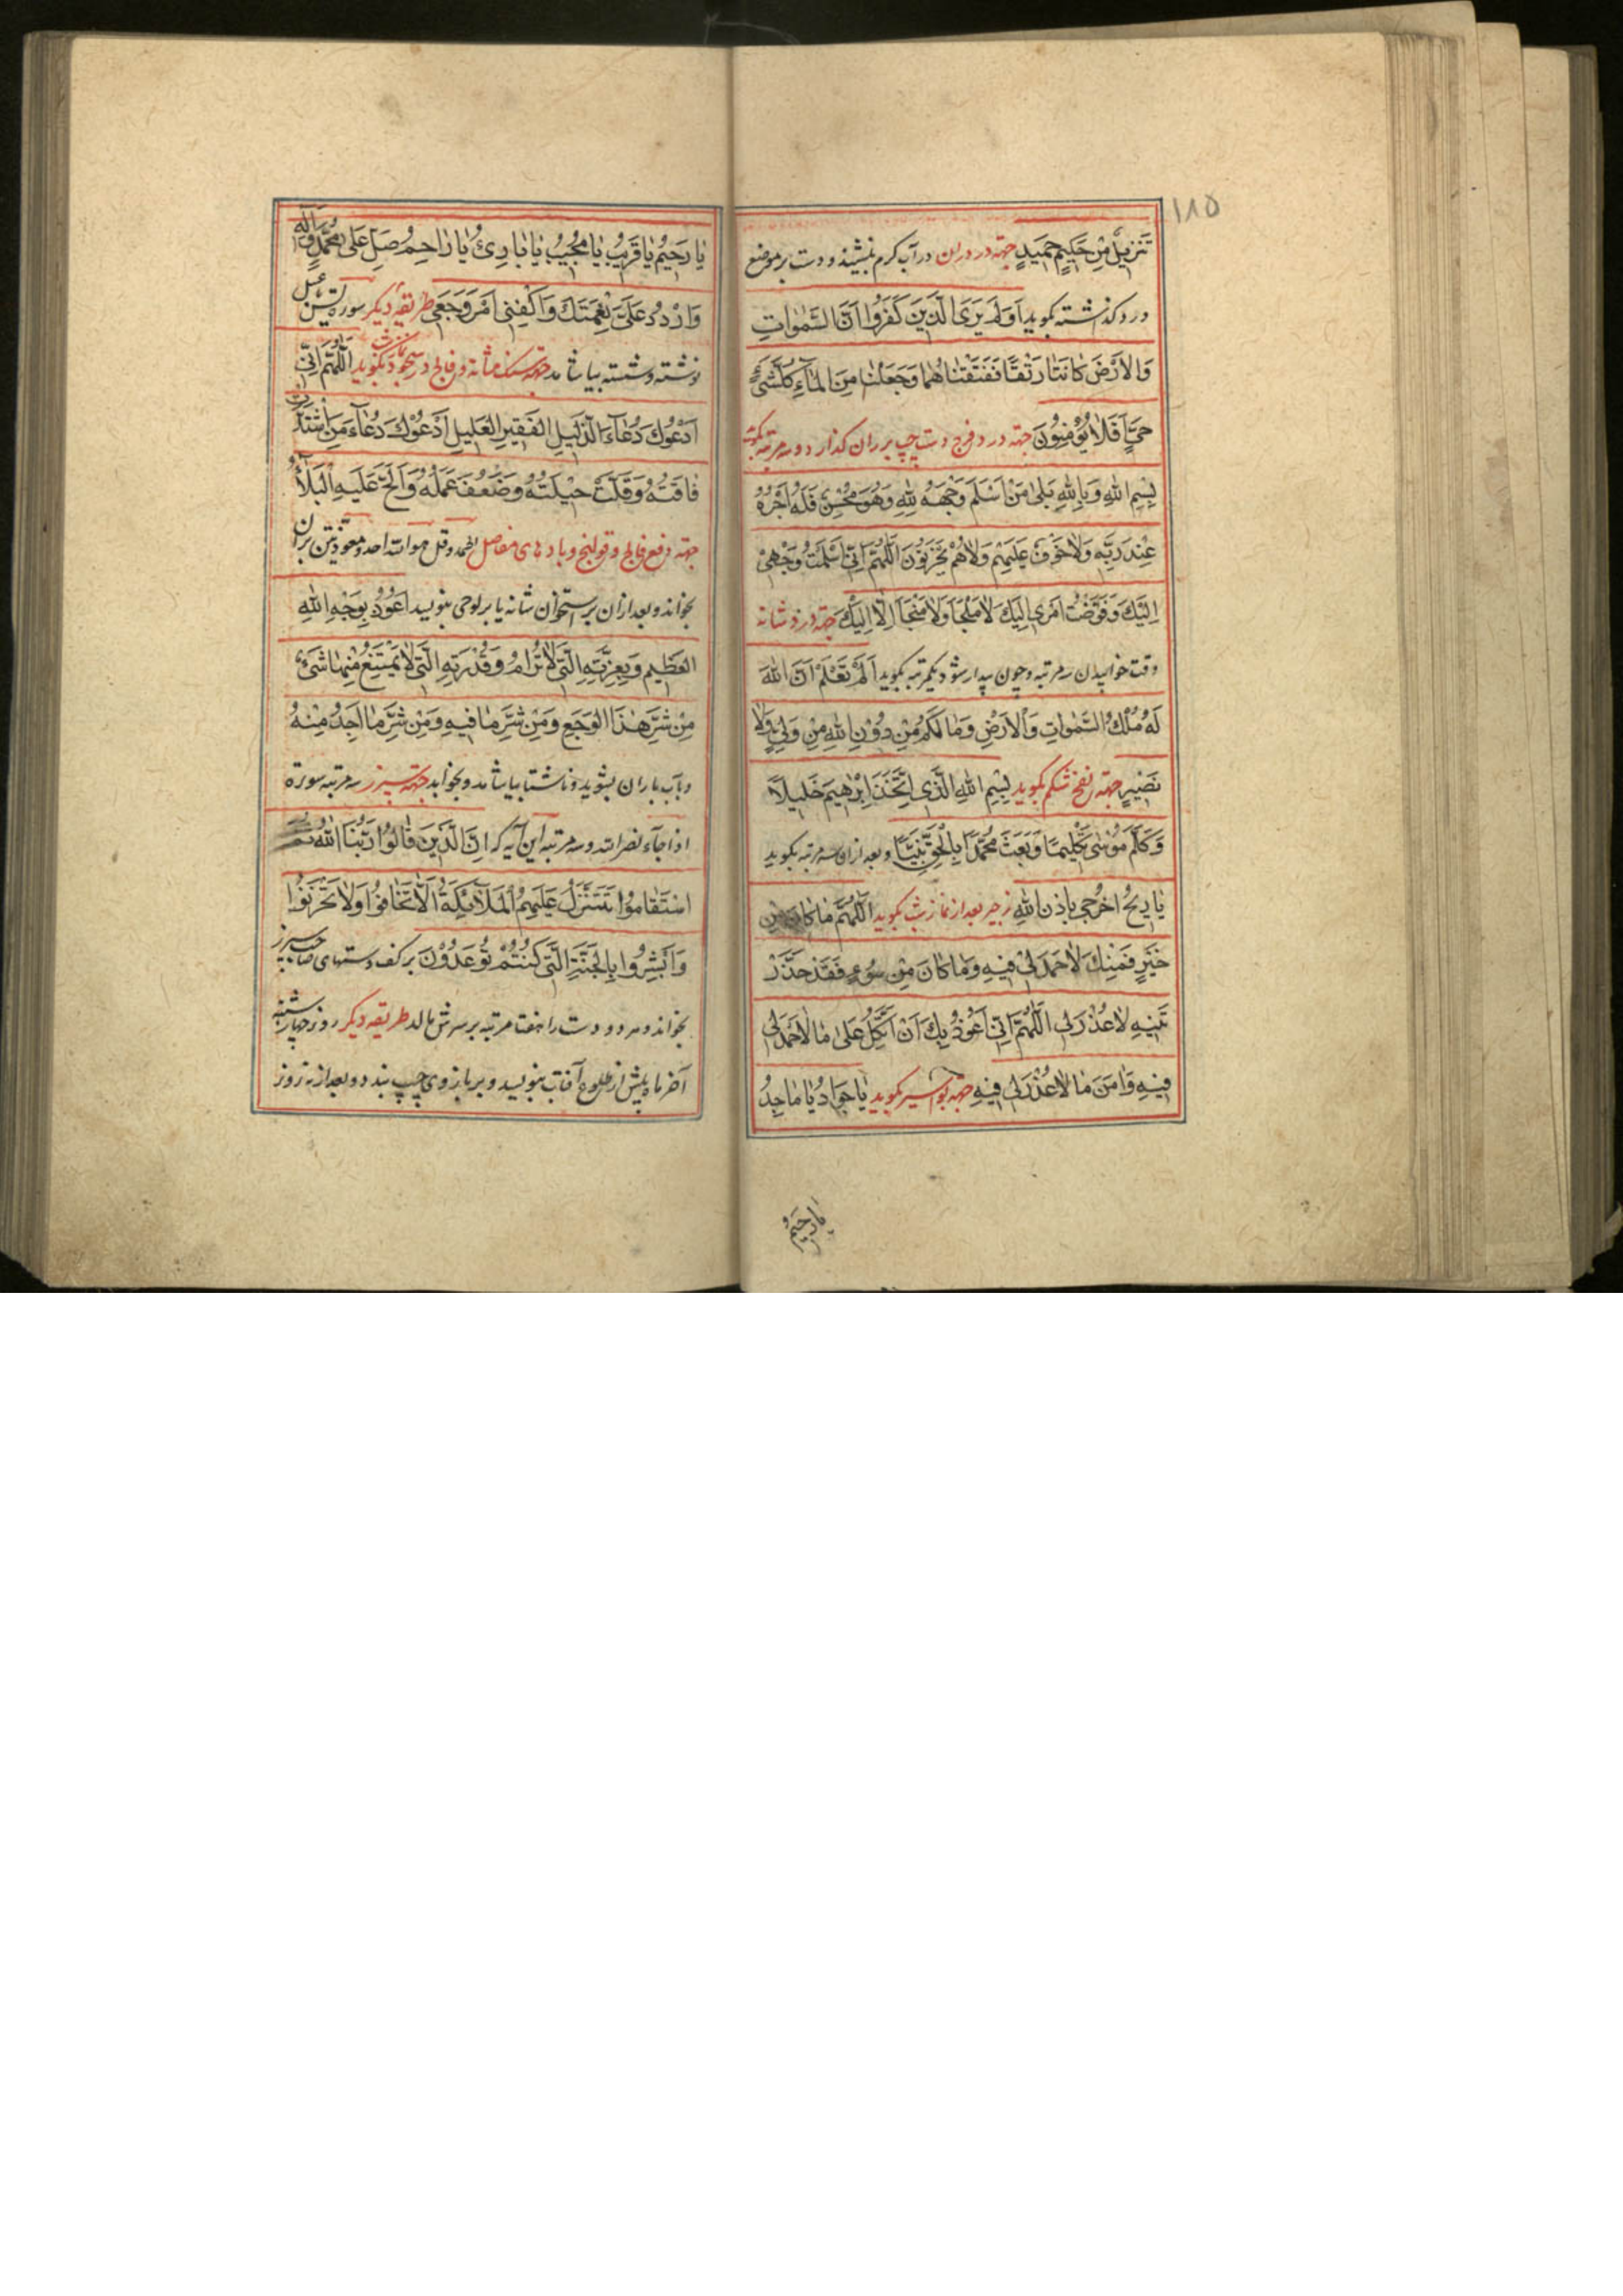 ١٨٥
تَنْزِيلٌ مِنْ حَكِيمٍ حَمِيدٍ جهة درد ران در آب گرم بنشیند و دست بر موضع
درد گذاشته بگوید اَوَلَمْ يَرَى الَّذِينَ كَفَرُوا اَنَّ السَّمٰوَاتِ
وَالْاَرْضَ كَانَتَا رَتْقًا فَفَتَقْنَاهُمَا وَجَعَلْنَا مِنَ الْمَاءِ كُلَّ شَىْءٍ
حَيٍّ اَفَلَا يُؤْمِنُونَ جهة درد فرج دست چپ بر ران گذارد و سه مرتبه بگوید
بِسْمِ اللهِ وَبِاللهِ بَلٰى مَنْ اَسْلَمَ وَجْهَهُ لِلّٰهِ وَهُوَ مُحْسِنٌ فَلَهُ اَجْرُهُ
عِنْدَ رَبِّهِ وَلَا خَوْفٌ عَلَيْهِمْ وَلَا هُمْ يَحْزَنُونَ اَللّٰهُمَّ اِنِّي اَسْلَمْتُ وَجْهِيْ
اِلَيْكَ وَفَوَّضْتُ اَمْرِي اِلَيْكَ لَا مَلْجَأَ وَلَا مَنْجَا اِلَّا اِلَيْكَ جهة درد شانه
وقت خوابیدن سه مرتبه و چون بیدار شود یکمرتبه بگوید اَلَمْ تَعْلَمْ اَنَّ اللهَ
لَهُ مُلْكُ السَّمٰوَاتِ وَالْاَرْضِ وَمَا لَكُمْ مِنْ دُوْنِ اللهِ مِنْ وَلِيٍّ وَلَا
نَصِيْرٍ جهة نفخ شکم بگوید بِسْمِ اللهِ الَّذِي اتَّخَذَ اِبْرٰهِيمَ خَلِيلًا
وَكَلَّمَ مُوْسٰى تَكْلِيمًا وَبَعَثَ مُحَمَّدًا بِالْحَقِّ نَبِيًّا و بعد ازان سه مرتبه بگوید
يَا رِيْحُ اخْرُجِي بِاِذْنِ اللهِ زحیر بعد از نماز شب بگوید اَللّٰهُمَّ مَا كَانَ مِنْ
خَيْرٍ فَمِنْكَ لَا حَمْدَ لِيْ فِيهِ وَمَا كَانَ مِنْ سُوْءٍ فَقَدْ حَذَّرْ
تَنِيهِ لَا عُذْرَ لِي اَللّٰهُمَّ اِنِّي اَعُوْذُ بِكَ اَنْ اَتَّكِلَ عَلٰى مَا لَا حَمْدَ لِي
فِيهِ وَاٰمَنَ مَا لَا عُذْرَ لِي فِيهِ جهة بواسیر بگوید يَا جَوَادُ يَا مَاجِدُ
يَا رَحِيْمُ
يَا رَحِيْمُ يَا قَرِيْبُ يَا مُجِيْبُ يَا بَارِئُ يَا رَاحِمُ صَلِّ عَلٰى مُحَمَّدٍ وَاٰلِهِ
وَارْدُدْ عَلَيَّ نِعْمَتَكَ وَاكْفِنِي اَمْرَ وَجَعِي طریقه دیگر سوره یس بعسل
نوشته و شسته بیاشامد جهة سنگ مثانه و فالج در سجود نماز شب بگوید اَللّٰهُمَّ اِنِّي
اَدْعُوْكَ دُعَاءَ الذَّلِيْلِ الْفَقِيرِ الْعَلِيلِ اَدْعُوْكَ دُعَاءَ مَنِ اشْتَدَّتْ
فَاقَتُهُ وَقَلَّتْ حِيْلَتُهُ وَضَعُفَ عَمَلُهُ وَاَلَحَّ عَلَيْهِ الْبَلَاءُ
جهة دفع فالج و قولنج و بادهای مفاصل الحمد و قل هو الله احد و معوذتین بر آن
بخواند و بعد ازان بر استخوان شانه یا بر لوحی بنویسد اَعُوْذُ بِوَجْهِ اللهِ
الْعَظِيمِ وَبِعِزَّتِهِ الَّتِي لَا تُرَامُ وَقُدْرَتِهِ الَّتِي لَا يَمْتَنِعُ مِنْهَا شَىْءٌ
مِنْ شَرِّ هٰذَا الْوَجَعِ وَمِنْ شَرِّ مَا فِيهِ وَمِنْ شَرِّ مَا اَجِدُ مِنْهُ
و بآب باران بشوید و ناشتا بیاشامد و بخوابد جهة سپرز سه مرتبه سورة
اذا جآء نصر الله و سه مرتبه این آیه که اِنَّ الَّذِيْنَ قَالُوْا رَبُّنَا اللهُ ثُمَّ
اسْتَقَامُوْا تَتَنَزَّلُ عَلَيْهِمُ الْمَلَائِكَةُ اَلَّا تَخَافُوْا وَلَا تَحْزَنُوْا
وَاَبْشِرُوا بِالْجَنَّةِ الَّتِي كُنْتُمْ تُوْعَدُوْنَ بر کف دستهای صاحب سپرز
بخواند و هر دو دست را هفت مرتبه بر سرش مالد طریقه دیگر روز چهارشنبه
آخر ماه پیش از طلوع آفتاب بنویسد و بر بازوی چپ بندد و بعد از سه روز